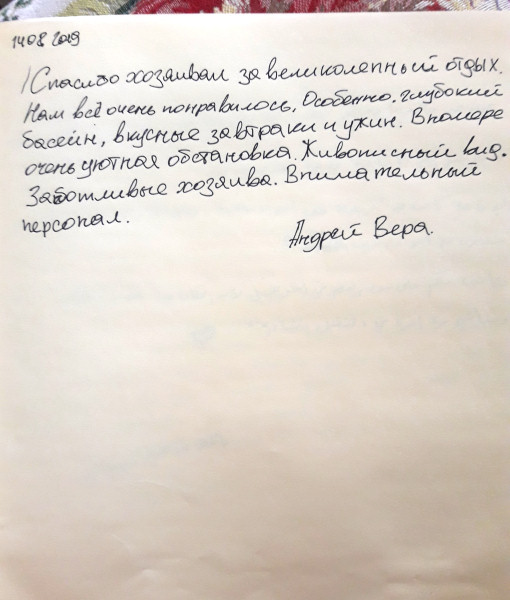 14 08 2019
Спасибо хозяивам за великолепный отдых.
Нам всё очень понравилось. Особенно. глубокий
басейн, вкусные завтраки и ужин. В номере
очень уютная обстановка. Живописный вид.
Заботливые хозяива. Внимательный
персонал.
Андрей Вера.